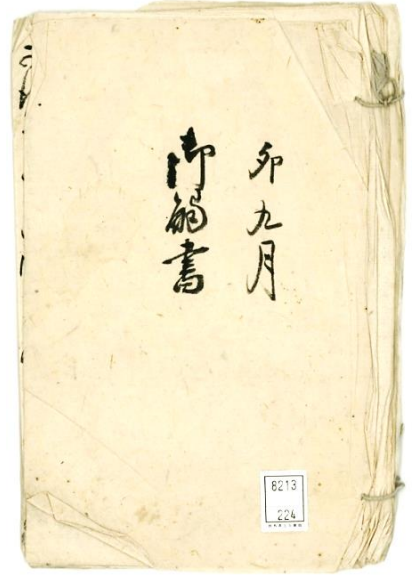 卯九月
御触書
8213
224